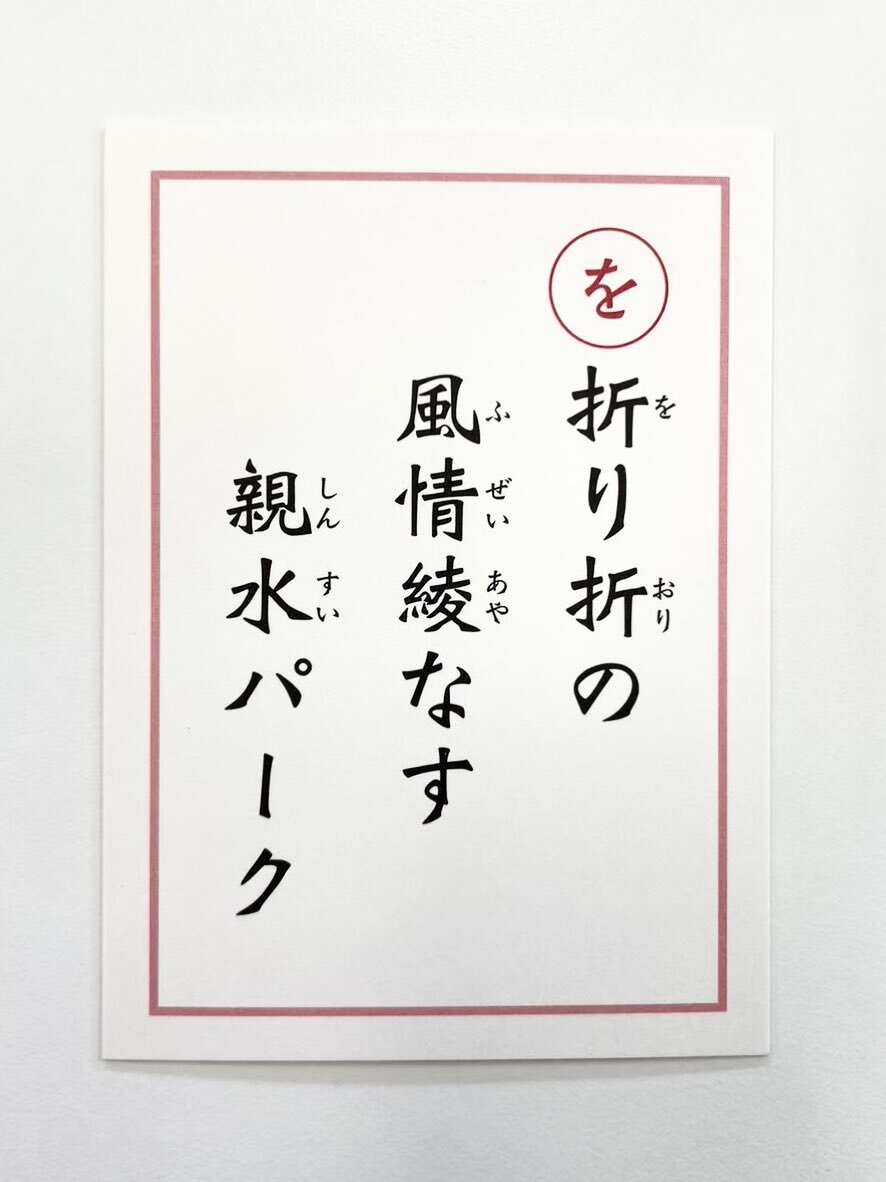 を
折り折の
風情綾なす
親水パーク
を
おり
ふ
ぜい
あや
しん
すい